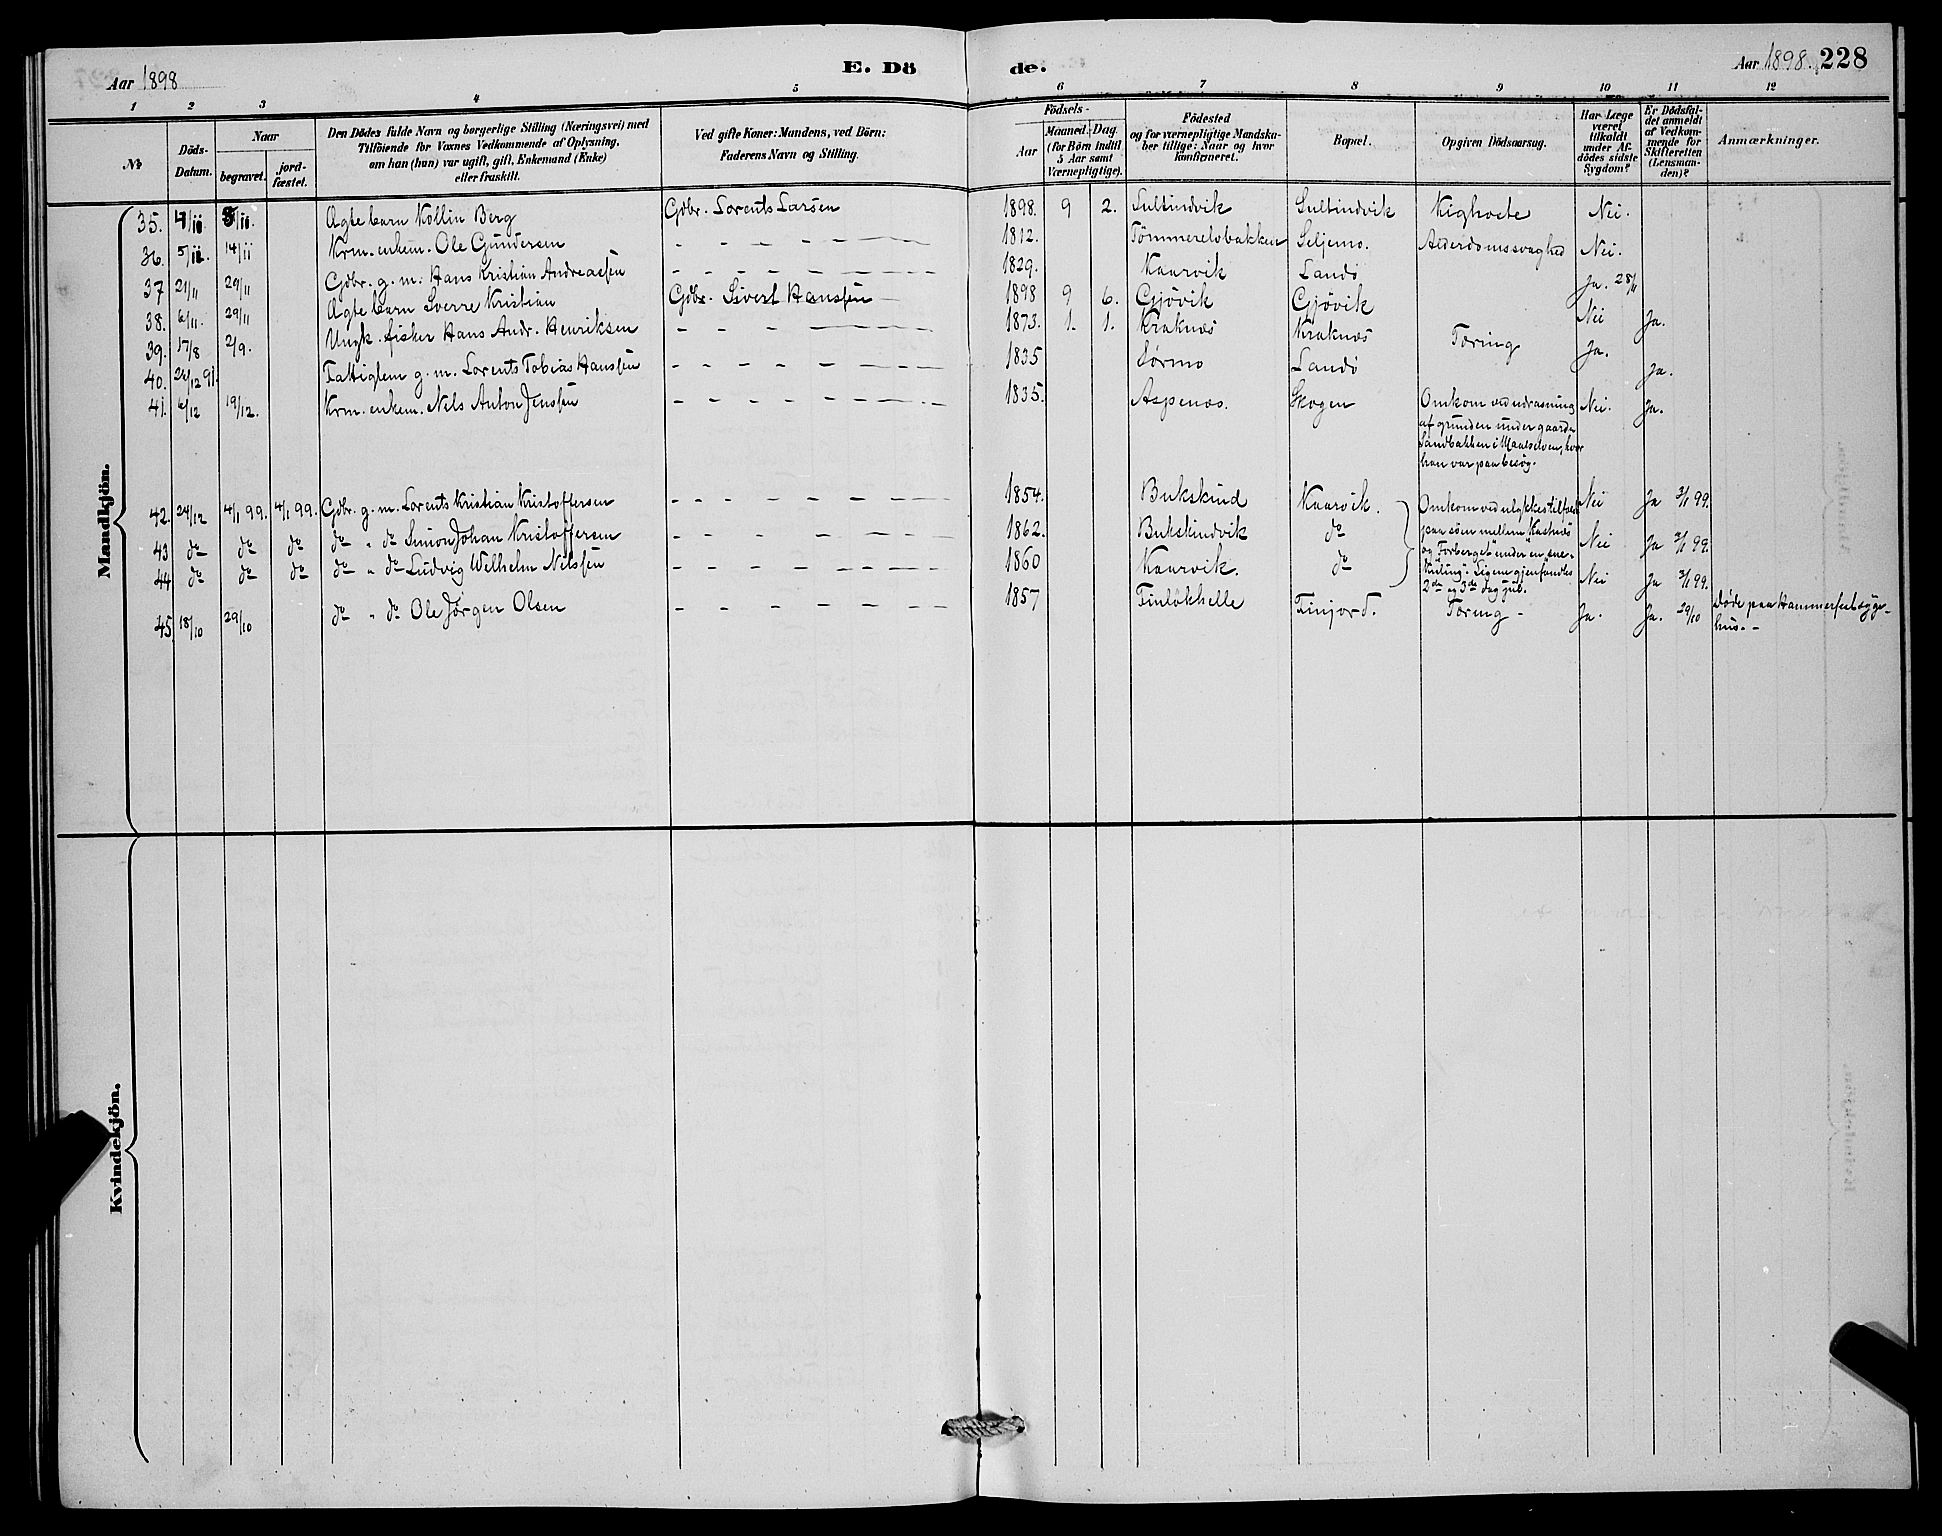 Aar 1898
E. Dö
de.
Aar 1898. 228
1 2 3 4 5 6 7 8 9 10 11 12
№
Döds-
Datum.
Naar
begravet.
jord-
fæstet.
Den Dödes fulde Navn og borgerlige Stilling (Næringsvei) med
Tilföiende for Voxnes Vedkommende af Oplysning,
om han (hun) var ugift, gift, Enkemand (Enke)
eller fraskilt.
Ved gifte Koner: Mandens, ved Börn:
Faderens Navn og Stilling.
Födsels-
Aar
Maaned. Dag.
(for Börn indtil
5 Aar samt
Værnepligtige).
Födested
og for værnepligtige Mandska-
ber tillige: Naar og hvor
konfirmeret.
Bopæl.
Opgiven Dödsaarsag.
Har Læge
været
tilkaldt
under Af-
dödes sidste
Sygdom?
Er Dödsfal-
det anmeldt
af Vedkom-
mende for
Skifteretten
(Lensman-
den)?
Anmærkninger.
Mandkjön.
35. 4/11. 5/11. Ægte barn Kollin Berg Gdbr. Lorents Larsen 1898. 9 2. Sultindvik Sultindvik Kighoste Nei.
36. 5/11. 14/11 Krm. enkem. Ole Gundersen - - - - - - - 1812. Tømmerelvbakken Seljemo. Alderdomssvaghed Nei.
37 21/11 29/11 Gdbr. g. m. Hans Kristian Andreassen - - - - - - - 1829. Kaarvik Landø Ja. 28/11
38. 6/11. 29/11 Ægte barn Sverre Kristian Gdbr. Sivert Hanssen 1898 9 6. Gjövik Gjövik Nei
39. 17/8 2/9. Ungk. fisker Hans Andr. Henriksen - - - - - - - 1873. 1. 1. Kraknæs Kraknæs Tæring Ja. Ja.
40. 26/12 91. Fattiglem g. m. Lorents Tobias Hanssen - - - - - - - 1835 Sørmo Landø Ja.
41. 6/12 19/12. Krm. enkem. Nels Anton Jenssen - - - - - - - 1835. Aspenæs. Skogen Omkom ved udrasning Nei. Ja.
af grunden under gaarden
Sandbakken i Maalselven, hvor
han var paa besøg.
42. 24/12 4/1 99. 4/1 99. Gdbr. g. m. Lorents Kristian Kristoffersen - - - - - - - 1854. Bukskind Kaarvik. Omkom ved ulykkestilfælde Nei Ja 3/1 99.
43 do do do do " do Simon Johan Kristoffersen - - - - - - - 1862. Bukskindvik do paa søen mellem "Kastnæs Nei Ja 3/1 99.
og Forberget" under en sne-
44 do do do do " do Ludvig Wilhelm Nelssen - - - - - - - 1860 Kaarvik. do kuling. Ligene gjenfandtes Nei Ja 3/1 99.
2den og 3de dag jul.
45. 18/10 29/10 do " do Ole Jørgen Olsen - - - - - - - 1857 Finlökhelle Finjord. Tæring - Ja. Ja. 29/10 Døde paa Hammerfest syge-
hus. -
Kvindekjön.